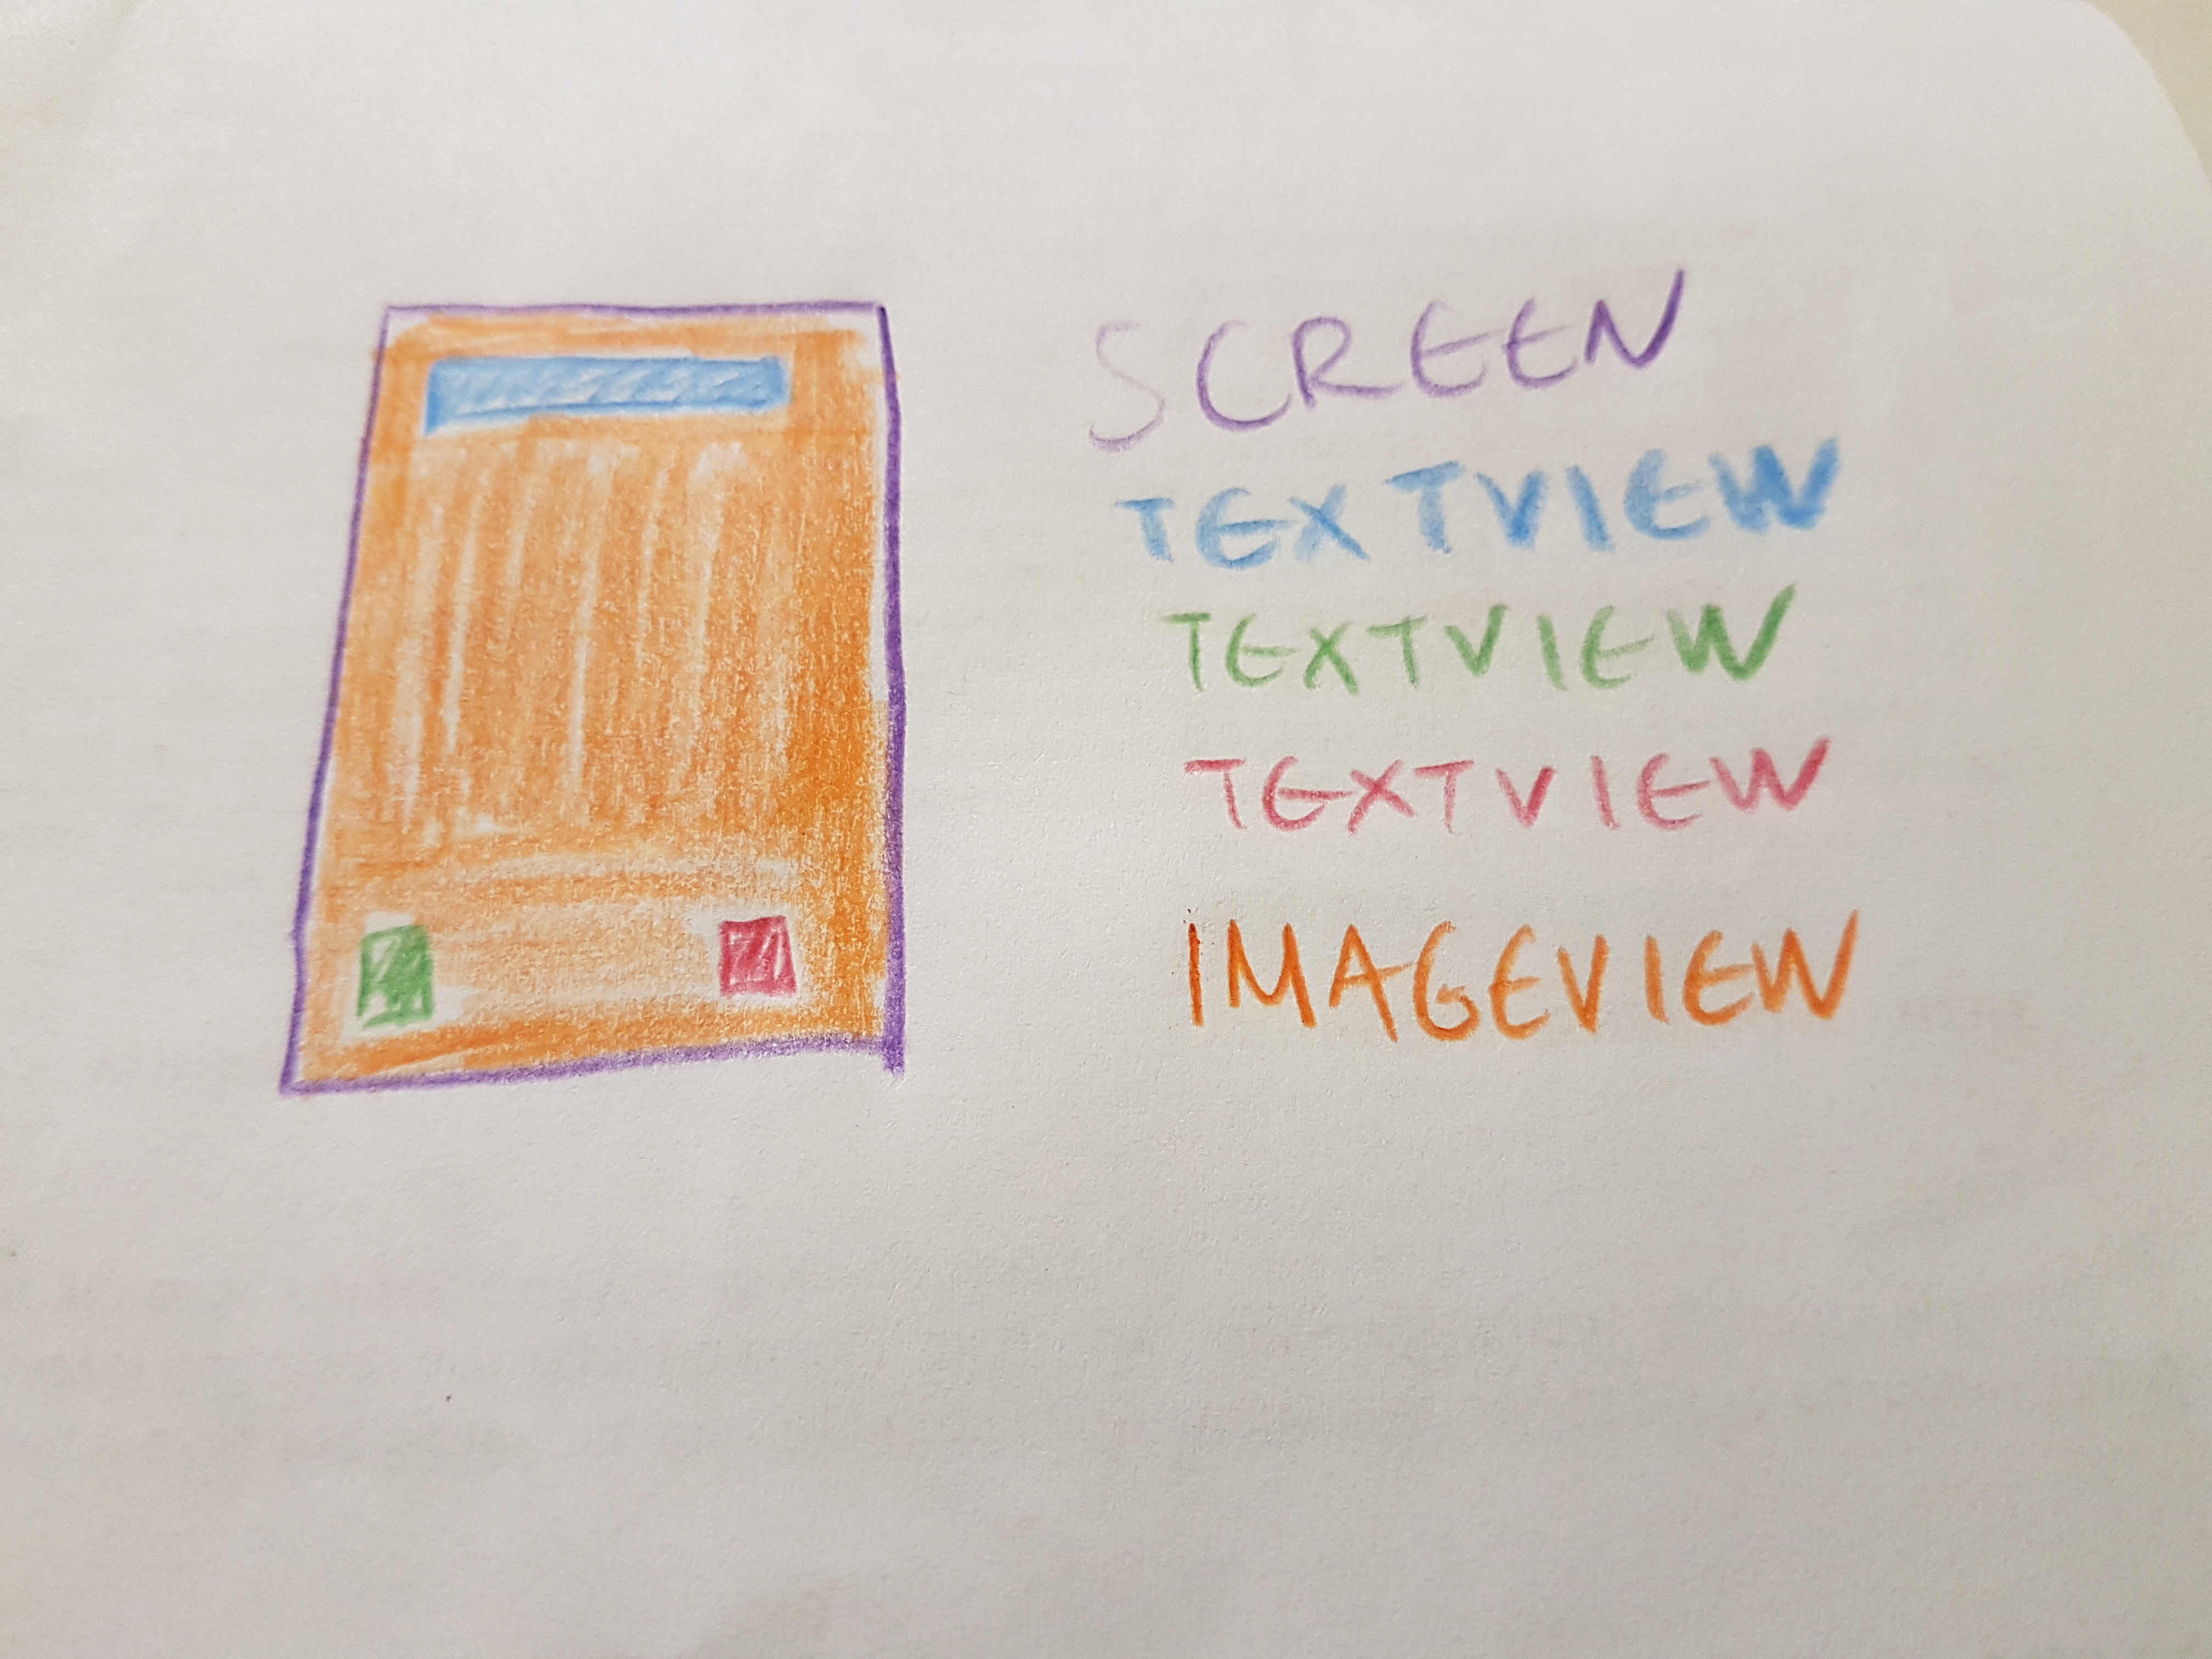 SCREEN
TEXTVIEW
TEXTVIEW
TEXTVIEW
IMAGEVIEW